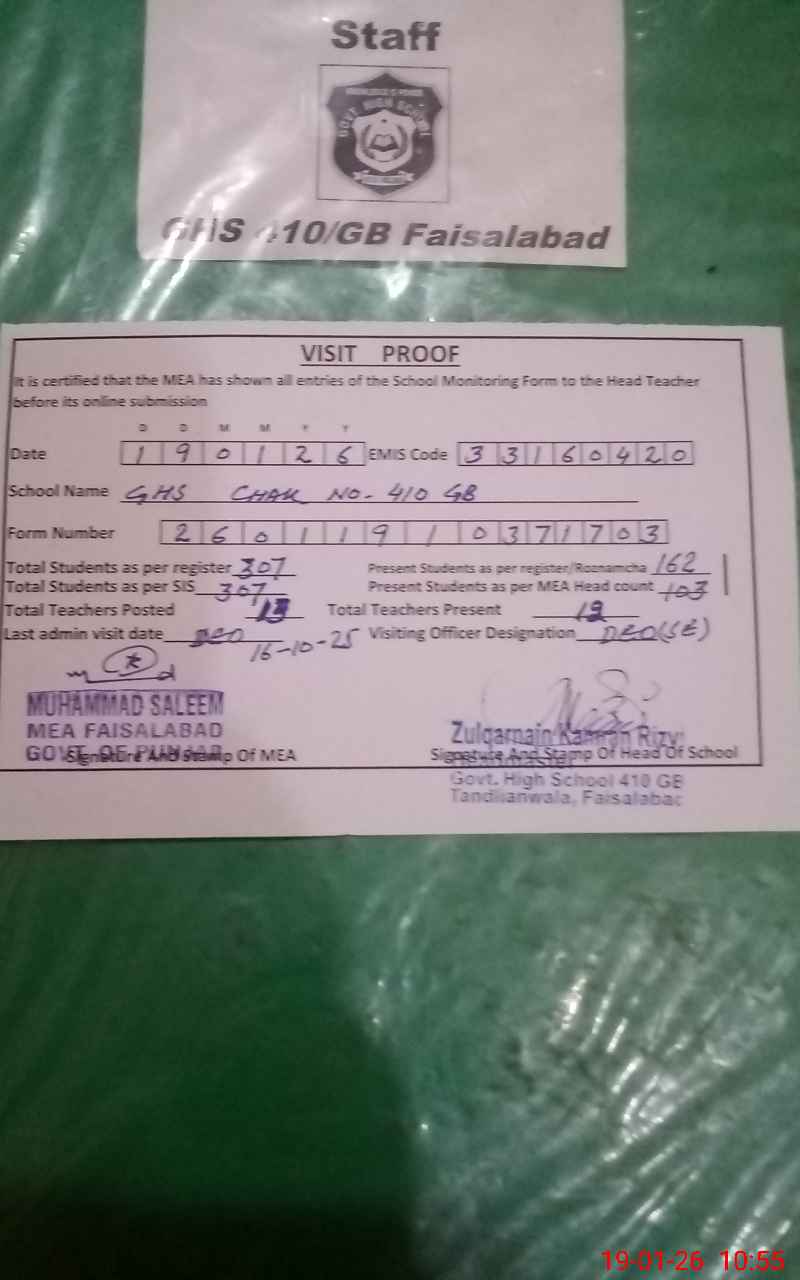 Staff
KNOWLEDGE IS POWER
GOVT. HIGH SCHOOL
GHS 410/GB Faisalabad
VISIT PROOF
It is certified that the MEA has shown all entries of the School Monitoring Form to the Head Teacher
before its online submission
D D M M Y Y
Date 1 9 0 1 2 6 EMIS Code 3 3 1 6 0 4 2 0
School Name GHS CHAK NO- 410 GB
Form Number 2 6 0 1 1 9 1 0 3 7 1 7 0 3
Total Students as per register 307 Present Students as per register/Roznamcha 162
Total Students as per SIS 307 Present Students as per MEA Head count 103
Total Teachers Posted 13 Total Teachers Present 12
Last admin visit date DEO 16-10-25 Visiting Officer Designation DEO(SE)
MUHAMMAD SALEEM
MEA FAISALABAD
GOVT. OF PUNJAB
Signature And Stamp Of MEA
Zulqarnain Kamran Rizvi
Signature And Stamp Of Head Of School
Govt. High School 410 GB
Tandlianwala, Faisalabad
19-01-26 10:55